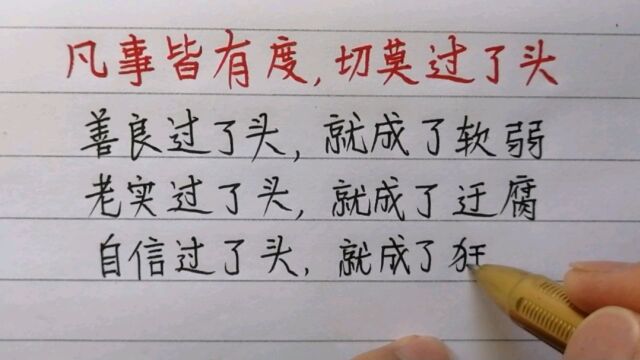 凡事皆有度,切莫过了头
善良过了头,就成了软弱
老实过了头,就成了迂腐
自信过了头,就成了狂